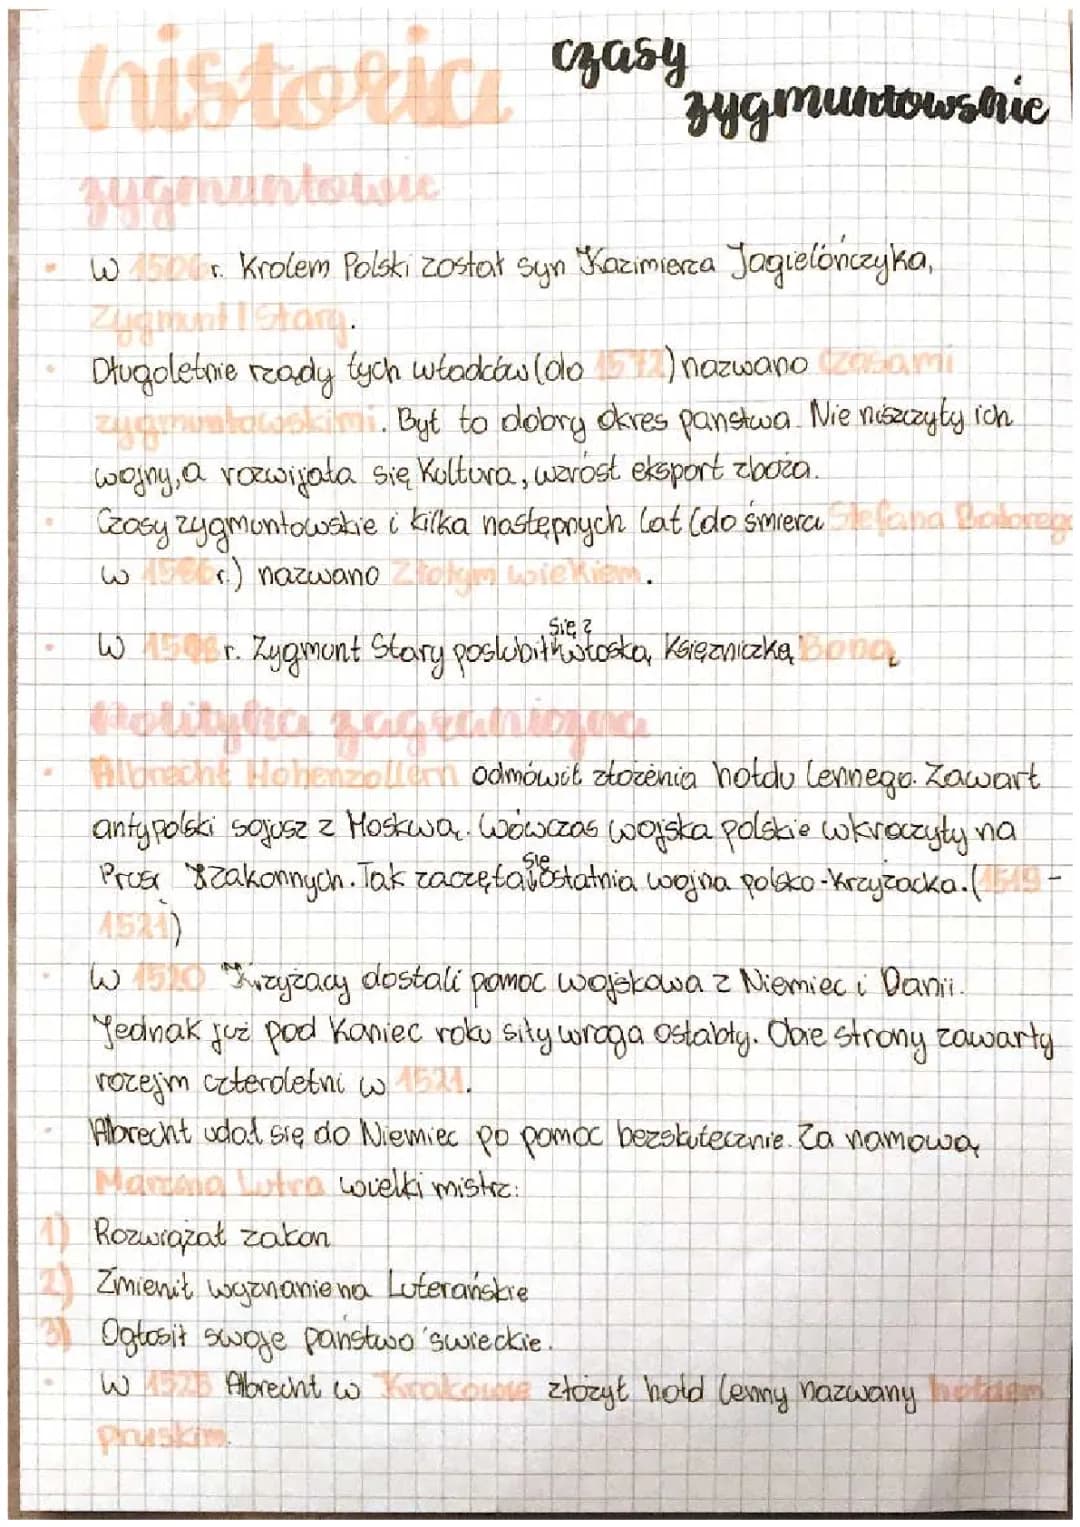 historia czasy
zygmuntowskie
zygmuntowie
W 1506 r. Krolem Polski został syn Kazimierza Jagielończyka,
Zygmunt I Stary.
Długoletnie rządy tych władców (do 1572) nazwano czasami
zygmuntowskimi. Był to dobry okres panstwa. Nie niszczyły ich
wojny, a rozwijała się Kultura, wzróst eksport zboża.
Czasy zygmuntowskie i kilka następnych lat (do śmierci Stefana Batorego
w 1586 r.) nazwano Złotym wiekiem.
W r. Zygmunt Stary poslubił się z włoską Księzniczką Boną
Polityka zagraniczna
Albrecht Hohenzollern odmówił złożenia hołdu lennego. Zawarł
antypolski sojusz z Moskwą. Wówczas wojska polskie wkroczyły na
Prusy zakonnych. Tak zaczęła się ostatnia wojna polsko-krzyżacka. (1519-
1521)
W 1520 Krzyżacy dostali pomoc wojskowa z Niemiec i Danii.
Jednak już pod Koniec roku siły wroga osłabły. Obie strony zawarły
rozejm czteroletni w 1521.
Albrecht udał się do Niemiec po pomoc bezskutecznie. Za namową
Marcina Lutra wielki mistrz:
1) Rozwiązał zakon
2) Zmienił wyznanie na Luterańskie
3) Ogłosił swoje państwo świeckie.
W 1525 Albrecht w Krakowie złożył hołd lenny nazwany hołdem
pruskim.